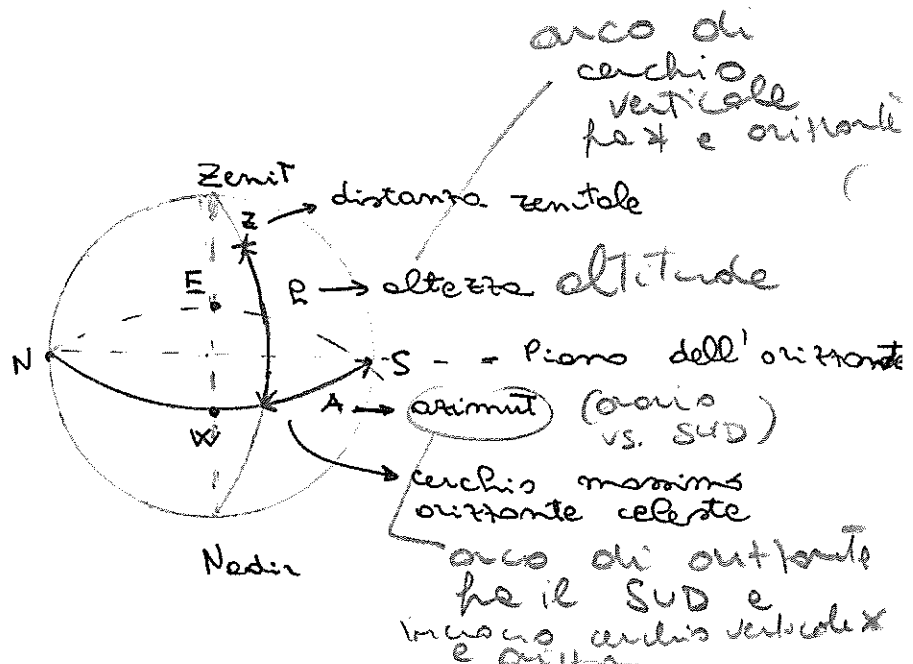 arco di
cerchio
verticale
fra * e orizzonte
(
Zenit
z → distanza zenitale
E
h → altezza altitudine
N
S - - Piano dell'orizzonte
A → azimut (orario
vs. SUD)
W
cerchio massimo
orizzonte celeste
Nadir
arco di orizzonte
fra il SUD e
incrocio cerchio verticale *
e